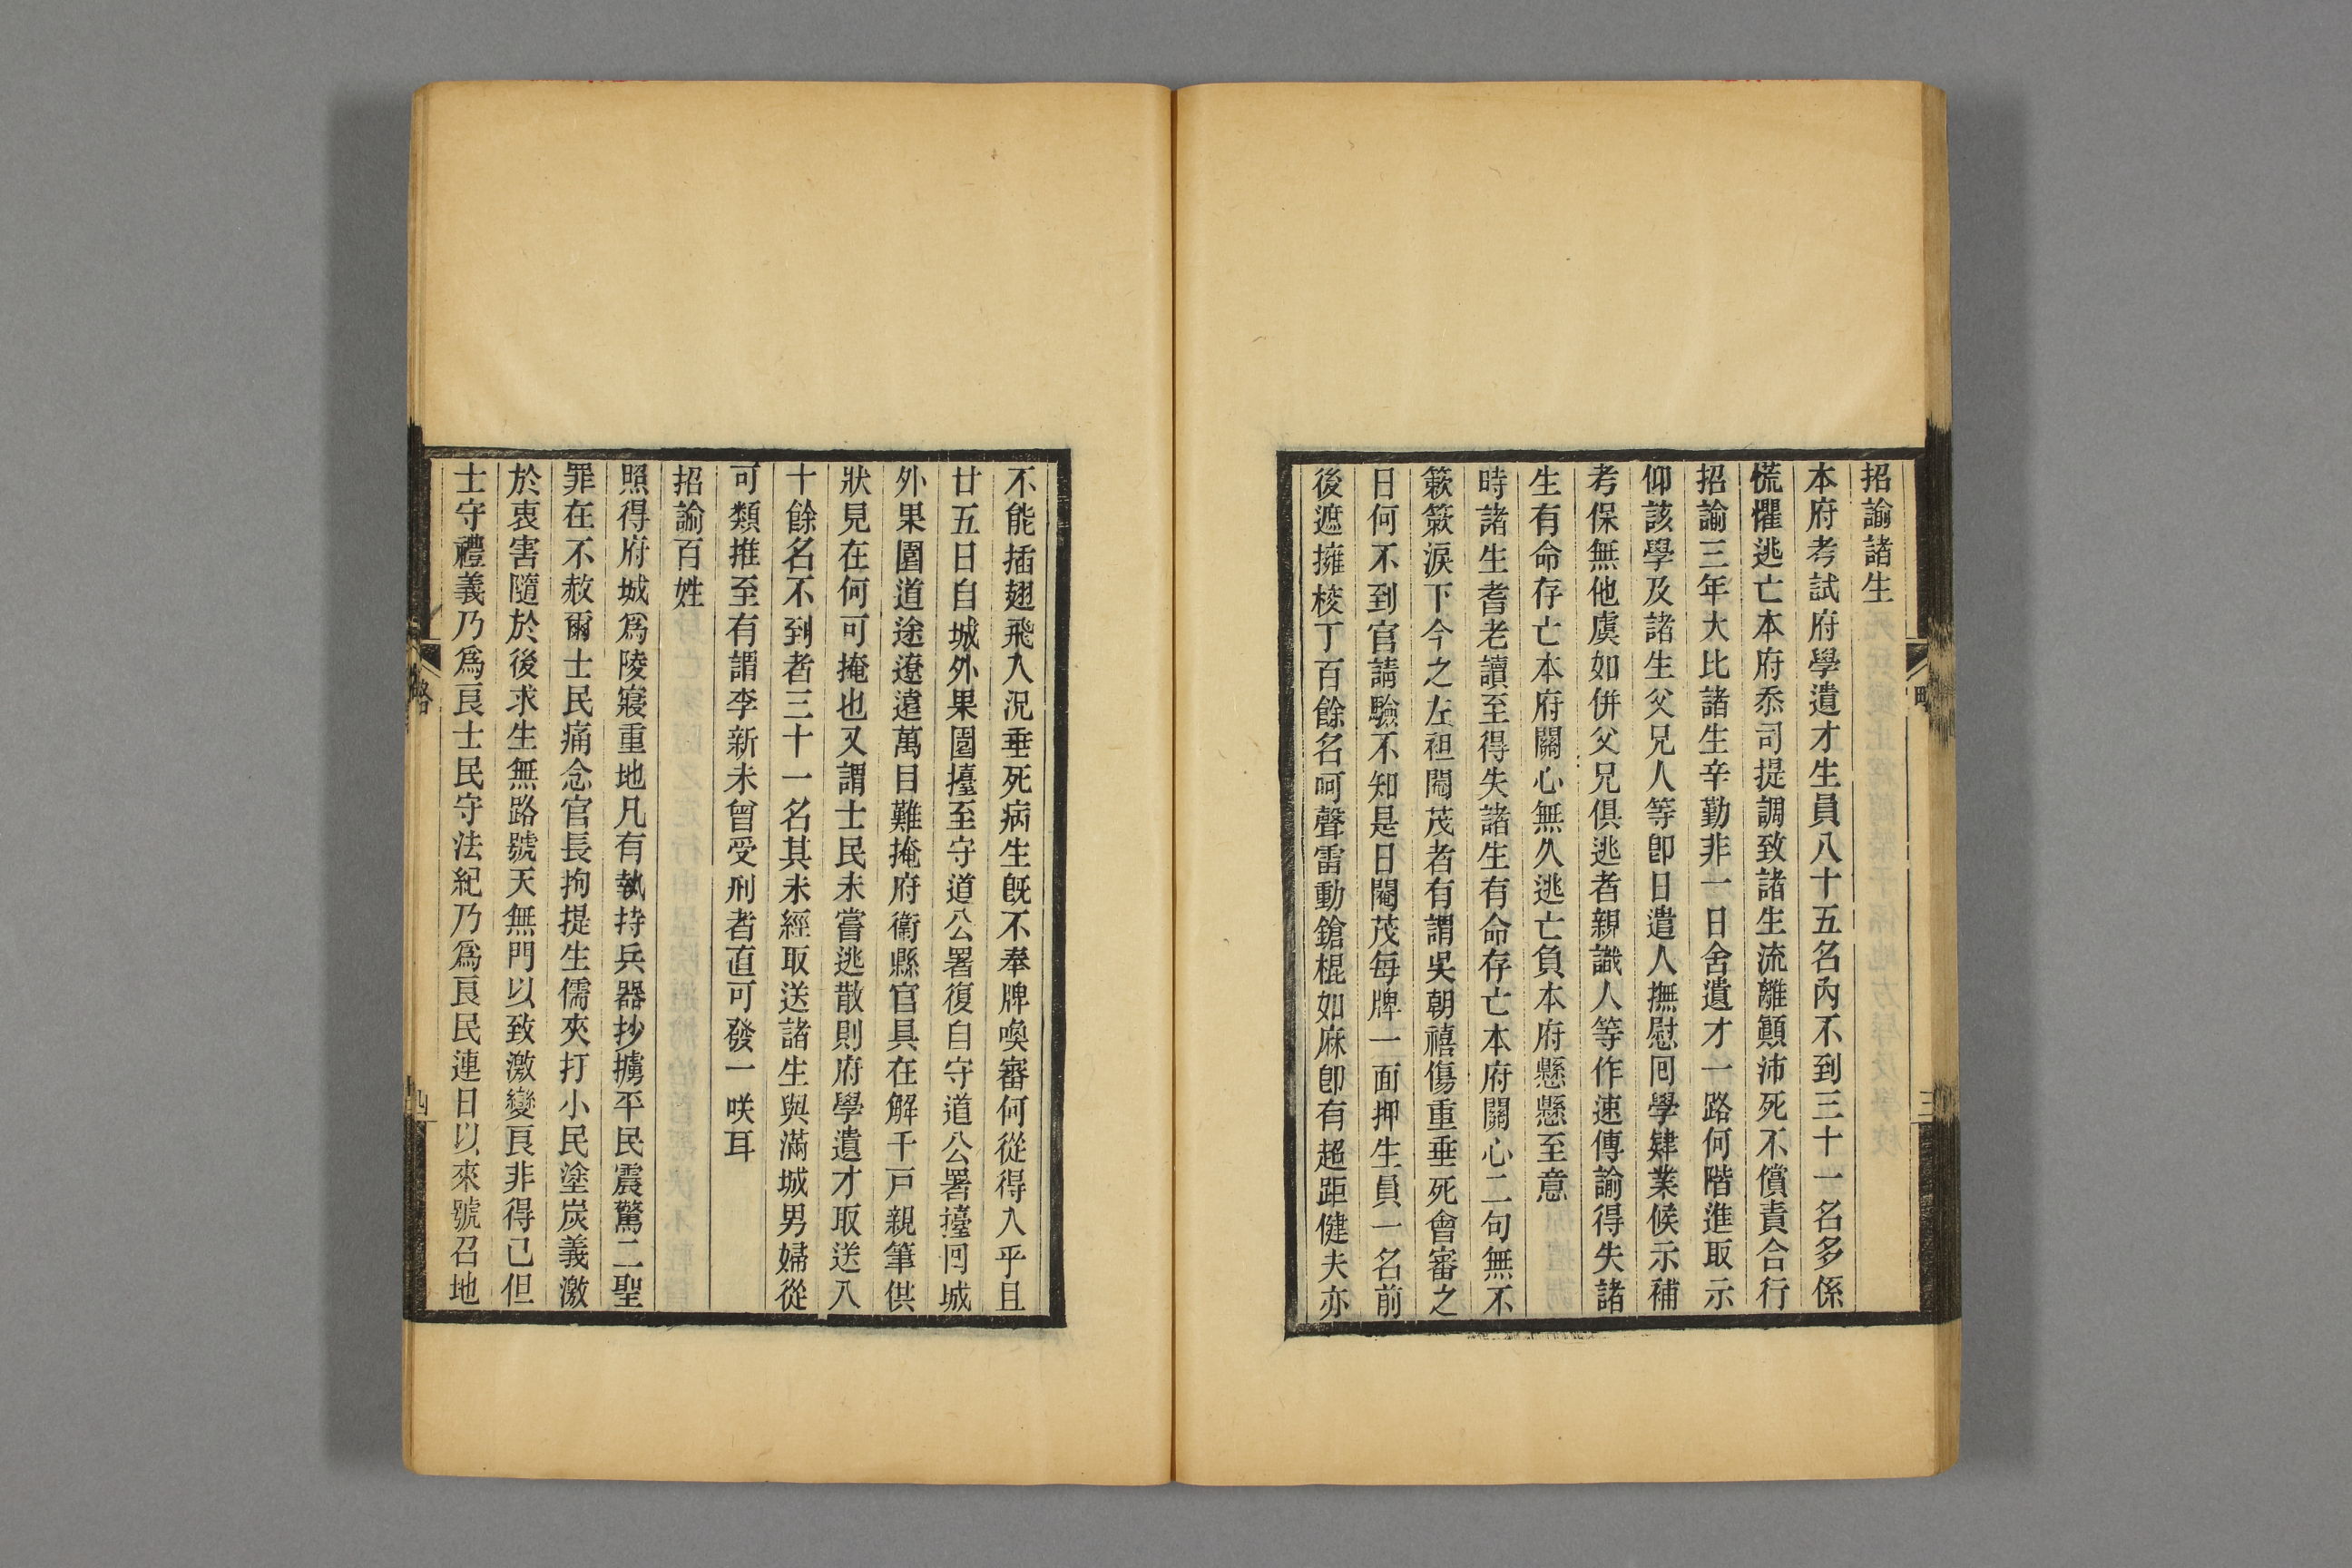 招諭諸生
本府考試府學遺才生員八十五名內不到三十一名多係
慌懼逃亡本府忝司提調致諸生流離顛沛死不償責合行
招諭三年大比諸生辛勤非一日舍遺才一路何階進取示
仰該學及諸生父兄人等卽日遣人撫慰囘學肄業候示補
考保無他虞如併父兄俱逃者親識人等作速傳諭得失諸
生有命存亡本府關心無久逃亡負本府懸懸至意
時諸生耆老讀至得失諸生有命存亡本府關心二句無不
簌簌淚下今之左袒閹茂者有謂吳朝禧傷重垂死會審之
日何不到官請驗不知是日閹茂每牌一面押生員一名前
後遮擁梭丁百餘名呵聲雷動鎗棍如麻卽有超距健夫亦
三
不能插翅飛入況垂死病生旣不奉牌喚審何從得入乎且
廿五日自城外果園擡至守道公署復自守道公署擡囘城
外果園道途遼遠萬目難掩府衛縣官具在解千戸親筆供
狀見在何可掩也又謂士民未嘗逃散則府學遺才取送八
十餘名不到者三十一名其未經取送諸生與滿城男婦從
可類推至有謂李新未曾受刑者直可發一咲耳
招諭百姓
照得府城爲陵寢重地凡有執持兵器抄擄平民震驚二聖
罪在不赦爾士民痛念官長拘提生儒夾打小民塗炭義激
於衷害隨於後求生無路號天無門以致激變良非得已但
士守禮義乃爲良士民守法紀乃爲良民連日以來號召地
略
四